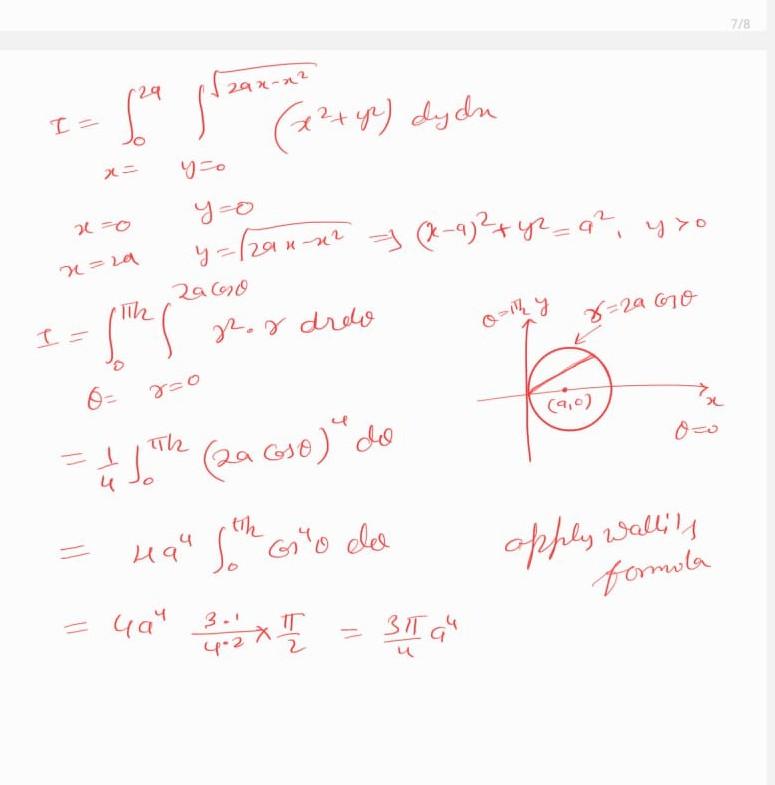 7/8
I = ∫₀^{2a} ∫^{√(2ax-x²)} (x²+y²) dydx
x= y=0
x=0 y=0
x=2a y=√(2ax-x²) ⇒ (x-a)²+y²=a², y>0
I = ∫₀^{π/2} ∫^{2a cosθ} r².r drdθ
θ= r=0
θ=π/2 y r=2a cosθ
(a,0) x
θ=0
= 1/4 ∫₀^{π/2} (2a cosθ)⁴ dθ
= 4a⁴ ∫₀^{π/2} cos⁴θ dθ apply walli's
formula
= 4a⁴ 3.1/4.2 × π/2 = 3π/4 a⁴